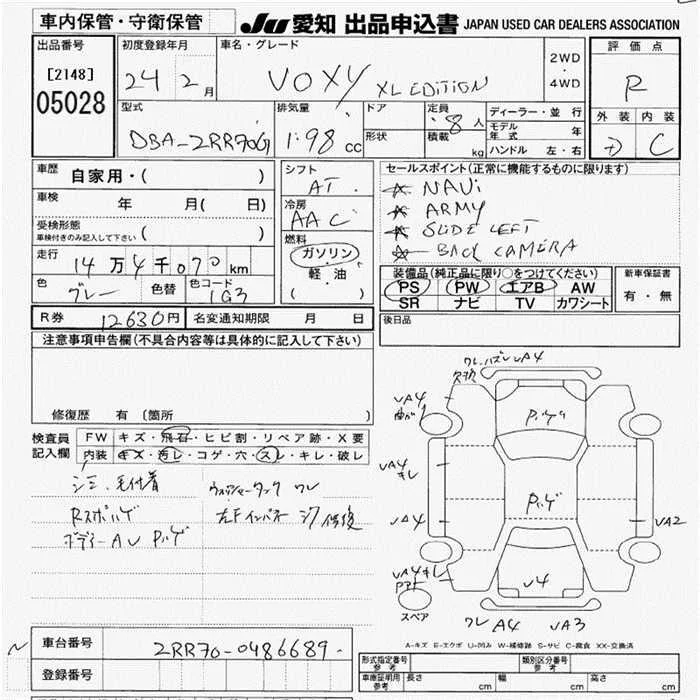 車内保管・守衛保管
JU 愛知 出品申込書 JAPAN USED CAR DEALERS ASSOCIATION
出品番号
[2148]
05028
初度登録年月
24 2月
車名・グレード
VOXY XL EDITION
2WD
・
4WD
評価点
R
外装 内装
D C
型式
DBA-2RR70G
排気量
1.98 cc
ドア
形状
定員
8人
積載
kg
ディーラー・並行
モデル年式 年
ハンドル 左・右
車歴 自家用・( )
車検 年 月( 日)
受検形態
車検付きのみ記入して下さい ( )
走行 14万4千070km
色 グレー 色替 色コード 1G3
シフト
AT
冷房
AAC
燃料
ガソリン
軽・油
( )
セールスポイント(正常に機能するものに限ります)
☆ NAVi
☆ ARMY
☆ SLIDE LEFT
☆ BACK CAMERA
装備品(純正品に限り○をつけてください)
PS PW エアB AW
SR ナビ TV カワシート
新車保証書
有・無
R券 12630円 名変通知期限 月 日
後日品
注意事項申告欄(不具合内容等は具体的に記入して下さい)
修復歴 有〔箇所 〕
検査員記入欄
FW キズ・飛石・ヒビ割・リペア跡・X要
内装 キズ・汚レ・コゲ・穴・スレ・キレ・破レ
シミ・毛付着 ウォッシャータンク ワレ
Rスポハゲ 左Fインパネ ジク修復
ボディーAU Pハゲ
ワレ.ハズレ UA4
欠ヶ
UA4
曲がり
Pハゲ
UA4
キレ
Pハゲ
UA4
UA2
UA4キレ
U4
スペア
ワレ A4 UA3
A-キズ E-エクボ U-凹み W-補修跡 S-サビ C-腐食 XX-交換済
車台番号 2RR70-0486689
登録番号
形式指定番号
参考
類別区分番号
参考
車庫証明用
参考
長さ cm 幅 cm 高さ cm